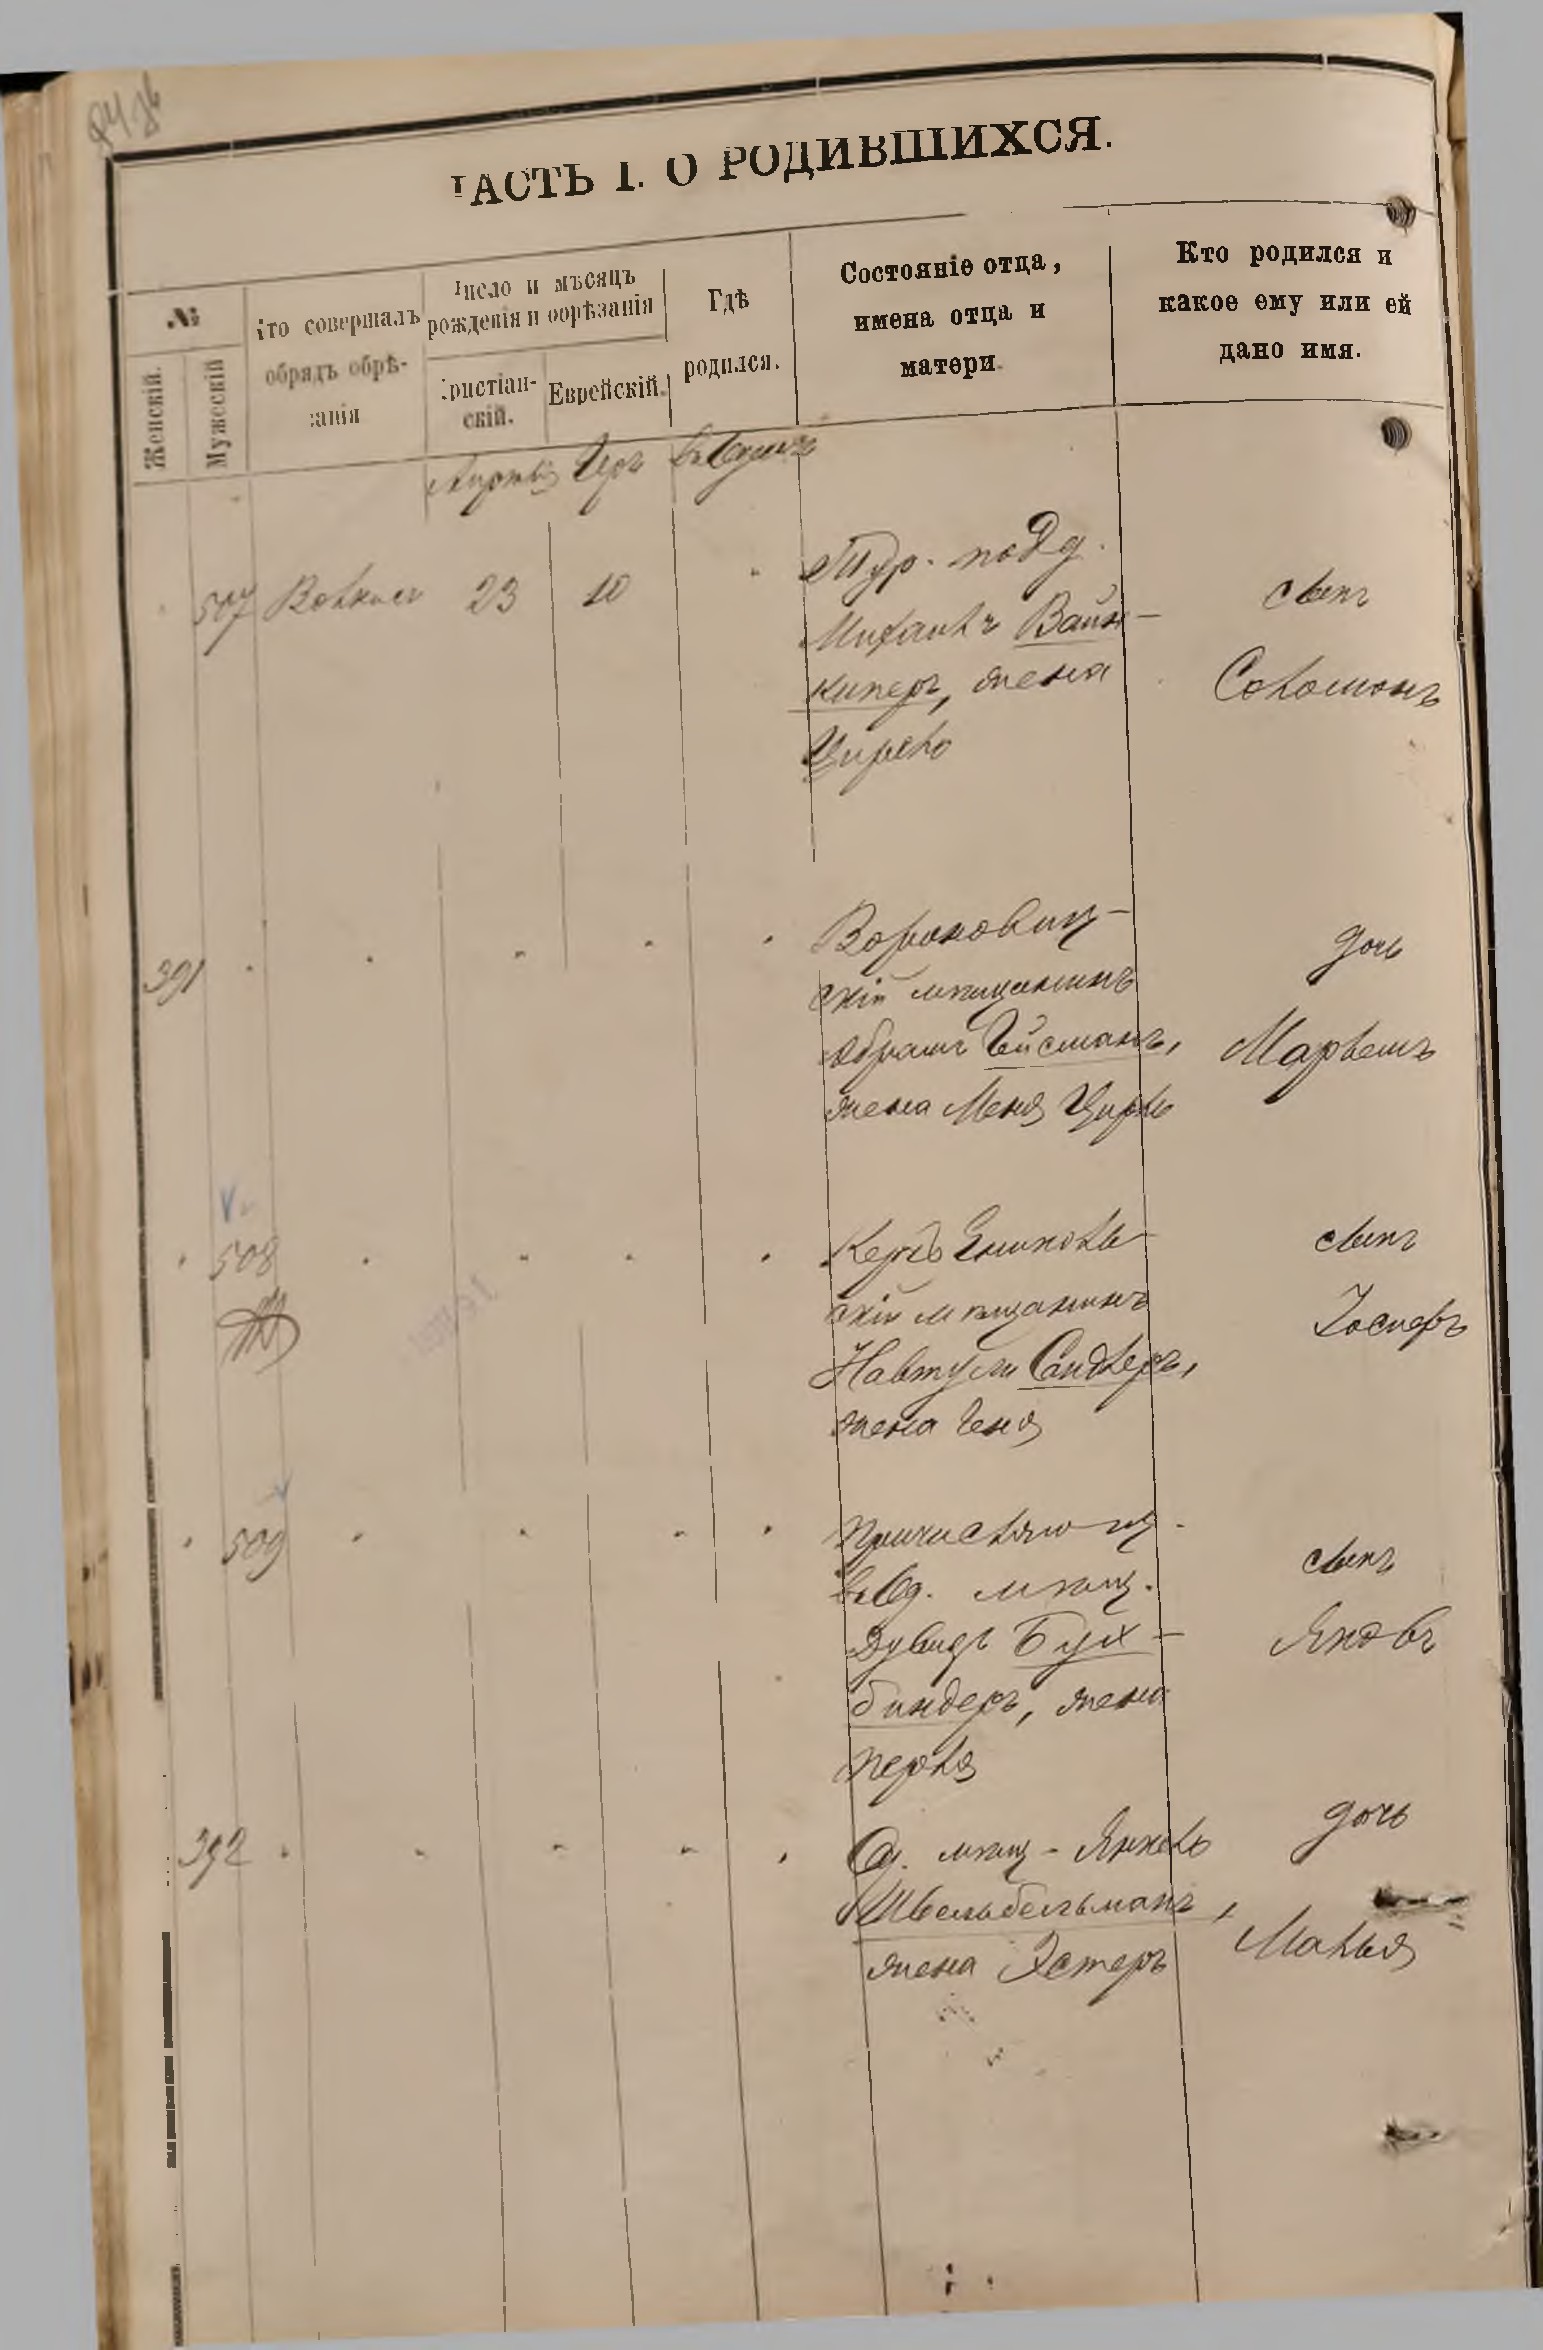 ЧАСТЬ I. О РОДИВШИХСЯ.
№
Женскій.
Мужескій
Кто совершалъ
обрядъ обрѣ-
занія
Число и мѣсяцъ
рожденія и обрѣзанія
Христіан-
скій.
Еврейскій.
Гдѣ
родился.
Состояніе отца,
имена отца и
матери.
Кто родился и
какое ему или ей
дано имя.
Іеръ
въ Одессѣ
507 Волкис 23 10
Тур. подд.
Михаилъ Вайн-
киперъ, жена
Цирель
сынъ
Соломонъ
391
Воронович-
скій мѣщанинъ
Абрамъ Гейсманъ,
жена Меня Цирль
дочь
Марьемъ
508
скій мѣщанинъ
Навтули Сандлеръ,
жена Геня
сынъ
Іосифъ
509
Причисляющ.
въ Од. мѣщ.
Дувидъ Бух-
биндеръ, жена
Перля
сынъ
Яковъ
392
Од. мѣщ. Янкель
Швельбельманъ,
жена Эстеръ
дочь
Малья